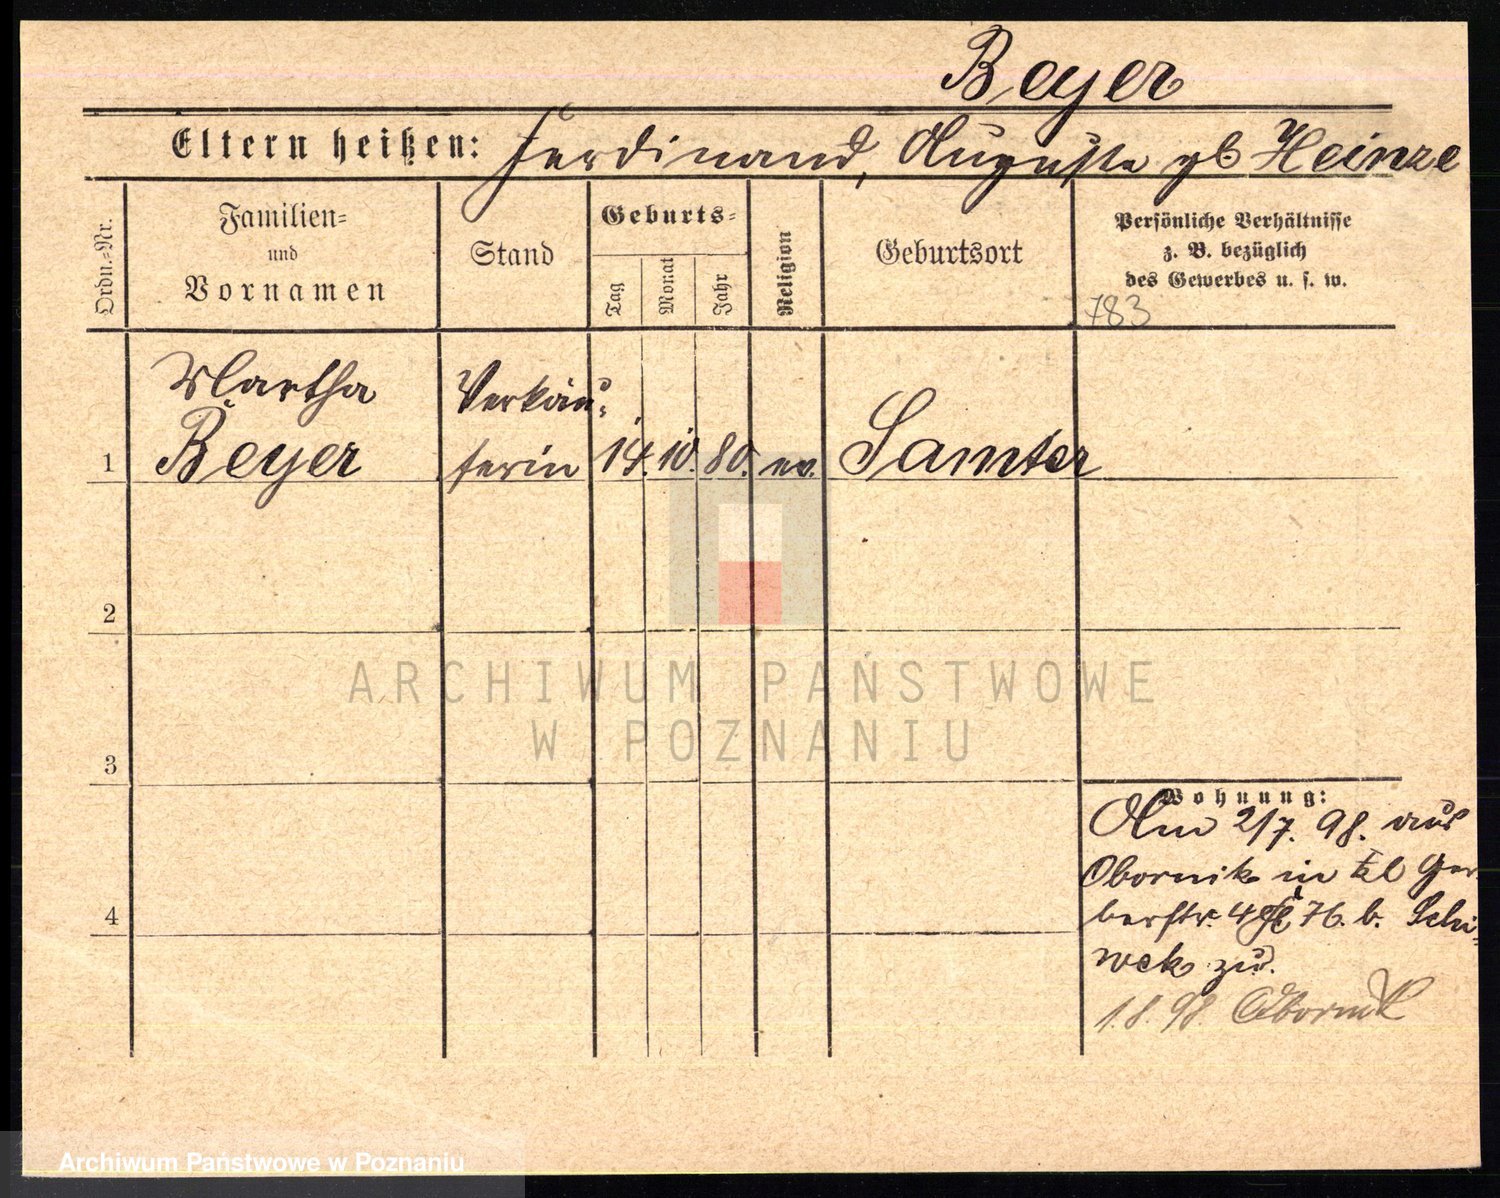 Beyer
Eltern heißen: Ferdinand, Auguste gb Heinze
Ordn.=Nr.
Familien=
und
Vornamen
Stand
Geburts=
Tag
Monat
Jahr
Religion
Geburtsort
Persönliche Verhältnisse
z. B. bezüglich
des Gewerbes u. s. w.
783
Martha Verkäu=
1 Beyer ferin 14. 10. 80. ev. Samter
2
ARCHIWUM PAŃSTWOWE
W POZNANIU
3
Wohnung:
Am 2/7. 98. aus
Obornik in kl Ger
4
berstr. 4 76. b. Schi=
wek zu.
1.8.98 Obornik
Archiwum Państwowe w Poznaniu